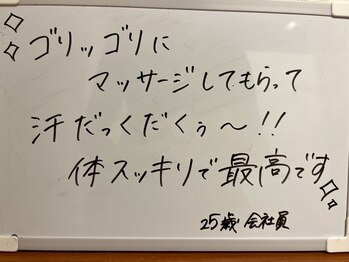 ゴリッゴリに
マッサージしてもらって
汗だっくだくぅ〜!!
体スッキリで最高です
25歳 会社員